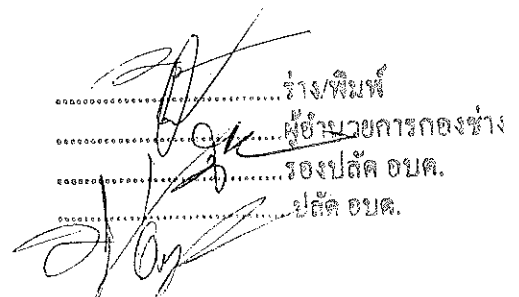 ....................ร่าง/พิมพ์
....................ผู้อำนวยการกองช่าง
....................รองปลัด อบต.
....................ปลัด อบต.